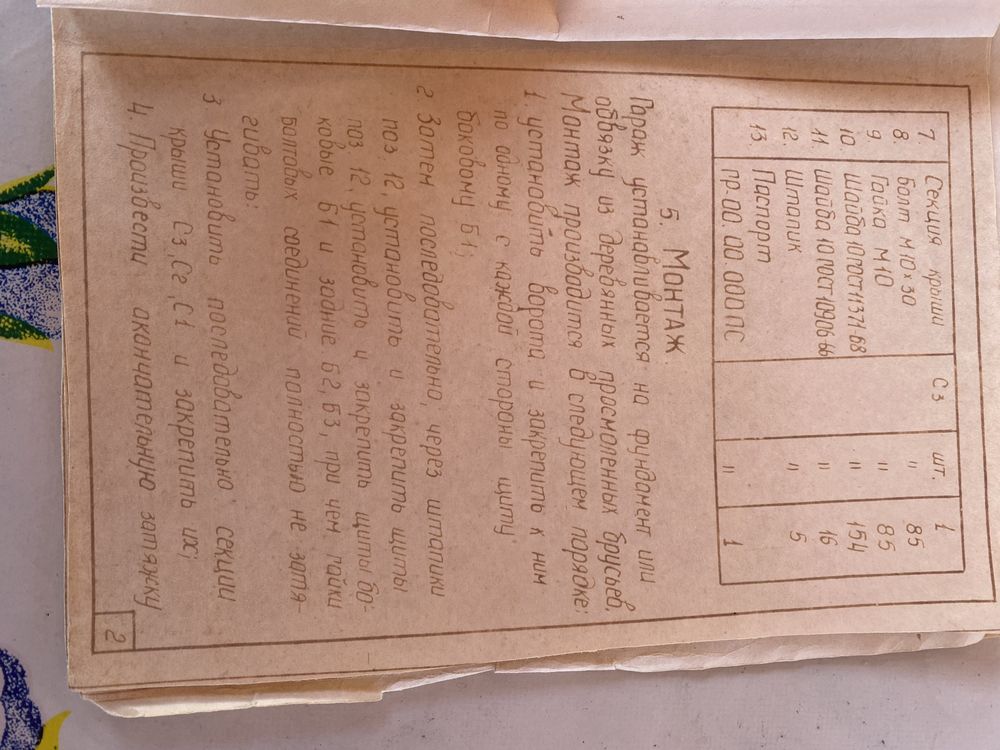 7. Секция крыши С3 шт. 1
8. Болт М10×30 " 85
9 Гайка М10 " 85
10 Шайба 10 ГОСТ 11371-68 " 154
11. Шайба 10 ГОСТ 10906-66 " 16
12. Штапик " 5
13. Паспорт
ПР.00.00.000ПС " 1
5. Монтаж.
Гараж устанавливается на фундамент или
обвязку из деревянных просмоленных брусьев.
Монтаж производится в следующем порядке:
1. установить ворота и закрепить к ним
по одному с каждой стороны щиту
боковому Б1;
2 Затем последовательно, через штапики
поз. 12, установить и закрепить щиты
поз. 12, установить и закрепить щиты бо-
ковые Б1 и задние Б2, Б3, при чем гайки
болтовых соединений полностью не затя-
гивать:
3 Установить последовательно секции
крыши С3, С2, С1 и закрепить их;
4. Произвести окончательную затяжку
2